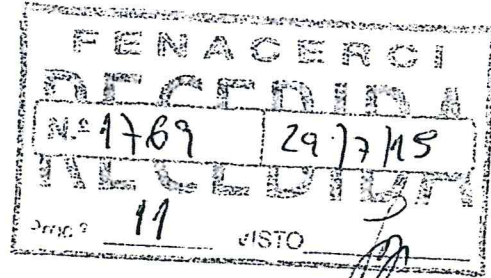 FENACERCI
RECEBIDA
N.º 1769 29/7/15
RECEBIDA
Proc.º 11 VISTO